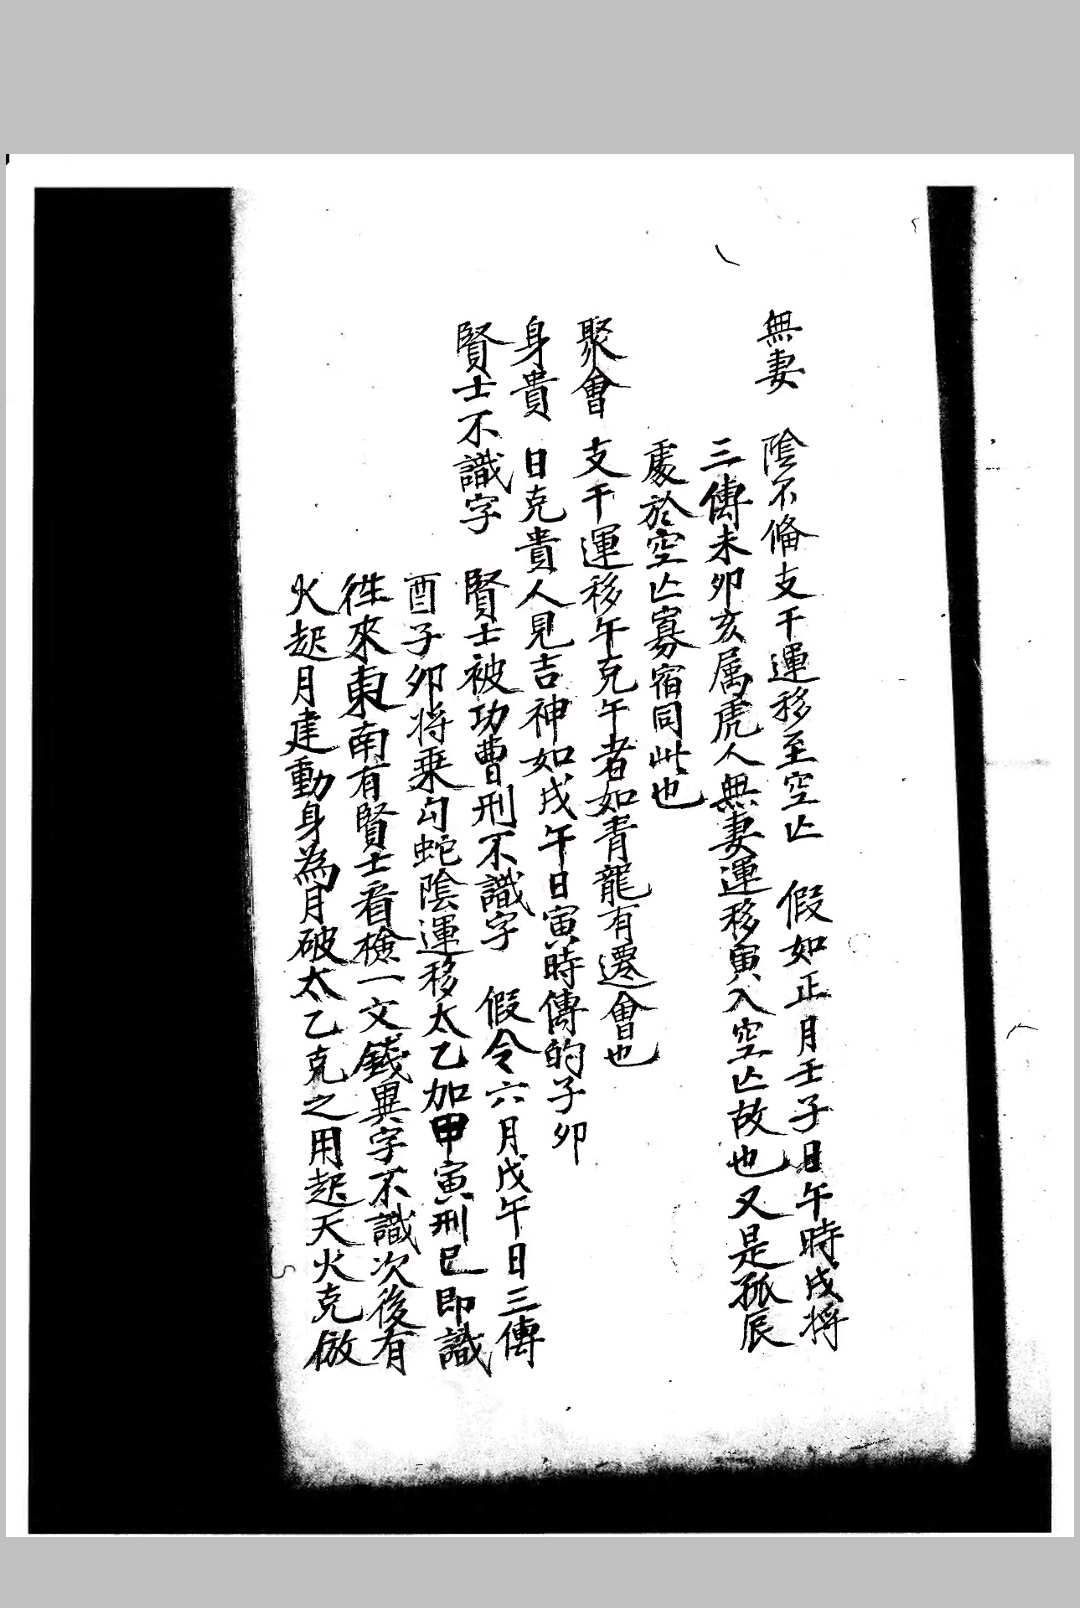 無妻 陰不俻支干運移至空亡 假如正月壬子日午時戌將
三傳未卯亥属虎人無妻運移寅入空亡故也又是孤辰
處於空亡寡宿同此也
聚會 支干運移午克午者如青龍有遷會也
身貴 日克貴人見吉神如戌午日寅時傳的子卯
賢士不識字 賢士被功曹刑不識字 假令六月戊午日三傳
酉子卯将乗勾蛇陰運移太乙加甲寅刑巳即識
徃來東南有賢士看檢一文錢異字不識次後有
火起月建動身為月破太乙克之用起天火克倣